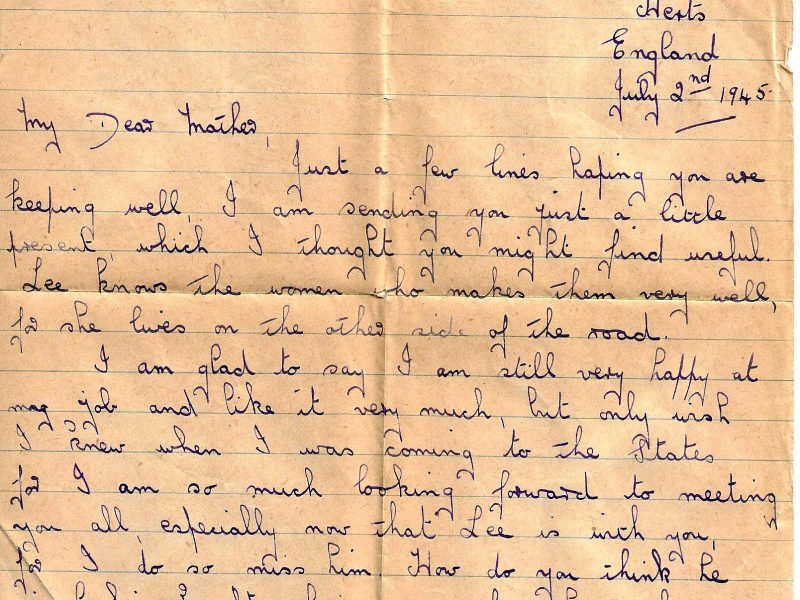 Herts
England
July 2nd 1945
My Dear Mother,
Just a few lines hoping you are
keeping well, I am sending you just a little
present, which I thought you might find useful.
Lee knows the women who makes them very well,
for she lives on the other side of the road.
I am glad to say I am still very happy at
my job and like it very much, but only wish
I knew when I was coming to the States
for I am so much looking forward to meeting
you all, especially now that Lee is with you,
for I do so miss him. How do you think he